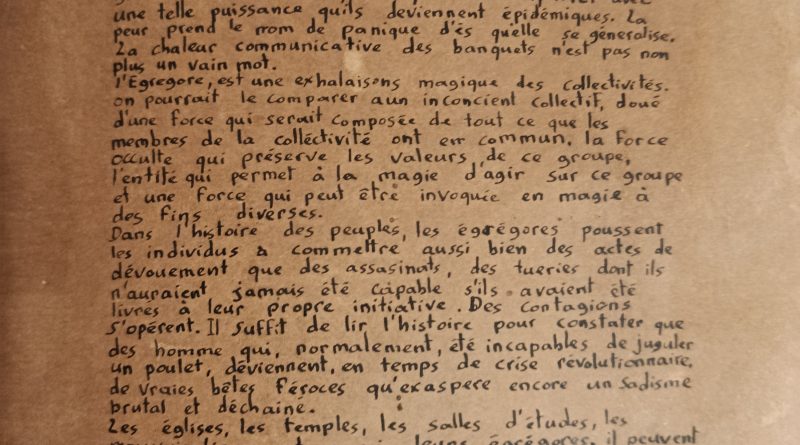 une telle puissance qu'ils deviennent épidémiques. La
peur prend le nom de panique d'és qu'elle se généralise.
La chaleur communicative des banquets n'est pas non
plus un vain mot.
l'Egregore, est une exhalaisons magique des collectivités.
on pourrait le comparer a un inconcient collectif, doué
d'une force qui serait composée de tout ce que les
membres de la colléctivité ont en commun. la force
occulte qui préserve les valeurs de ce groupe,
l'entité qui permet à la magie d'agir sur ce groupe
et une force qui peut être invoquée en magie à
des fins diverses.
Dans l'histoire des peuples, les égrégores poussent
les individus à commettre aussi bien des actes de
dévouement que des assasinats, des tueries dont ils
n'auraient jamais été capable s'ils avaient été
livrés à leur propre initiative. Des contagions
s'opérent. Il suffit de lir l'histoire pour constater que
des homme qui, normalement, été incapables de juguler
un poulet, déviennent, en temps de crise révolutionnaire,
de vraies bêtes féroces qu'exaspère encore un sadisme
brutal et déchainé.
Les églises, les temples, les salles d'études, les
leurs égrégores, il peuvent